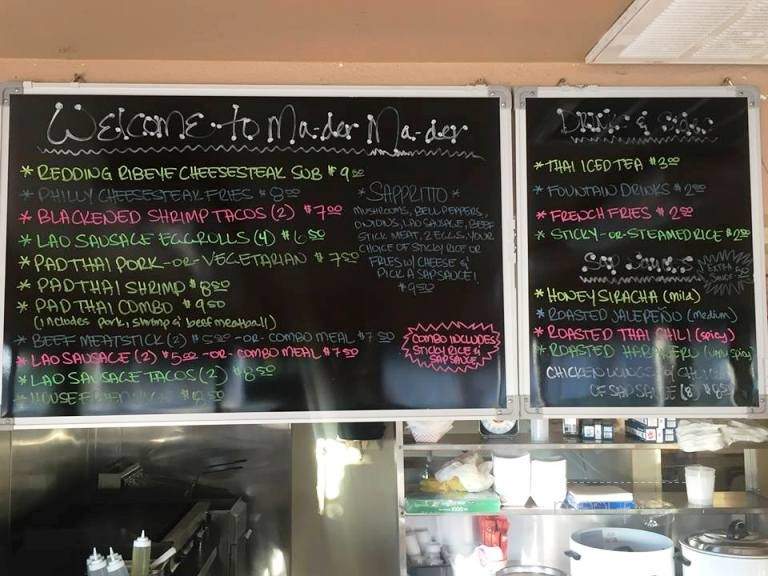 Welcome to Ma-der Ma-der
* REDDING RIBEYE CHEESESTEAK SUB $9 50
* PHILLY CHEESESTEAK FRIES $8 00
* BLACKENED SHRIMP TACOS (2) $7 00
* LAO SAUSAGE EGGROLLS (4) $6 50
* PAD THAI PORK -OR- VEGETARIAN $7 50
* PADTHAI SHRIMP $8 50
* PAD THAI COMBO $9 50
(includes pork, shrimp & beef meatball)
* BEEF MEATSTICK (2) $5 00 -OR- COMBO MEAL $7 50
* LAO SAUSAGE (2) $5 00 -OR- COMBO MEAL $7 50
* LAO SAUSAGE TACOS (2) $8 50
* HOUSE
* SAPPRITTO *
MUSHROOMS, BELL PEPPERS,
ONIONS, LAO SAUSAGE, BEEF
STICK MEAT, 2 EGGS, YOUR
CHOICE OF STICKY RICE OR
FRIES W/ CHEESE &
PICK A SAP SAUCE!
$9 50
COMBO INCLUDES
STICKY RICE &
SAP SAUCE
Drink & Sides
* THAI ICED TEA $3 00
* FOUNTAIN DRINKS $2 00
* FRENCH FRIES $2 50
* STICKY -OR- STEAMED RICE $2 00
Sap Sauces
EXTRA
SAUCE 50
* HONEY SIRACHA (mild)
* ROASTED JALEPEÑO (medium)
* ROASTED THAI CHILI (spicy)
* ROASTED HABANERO (very spicy)
CHICKEN WINGS W/ CHOICE
OF SAP SAUCE (8) $8 50